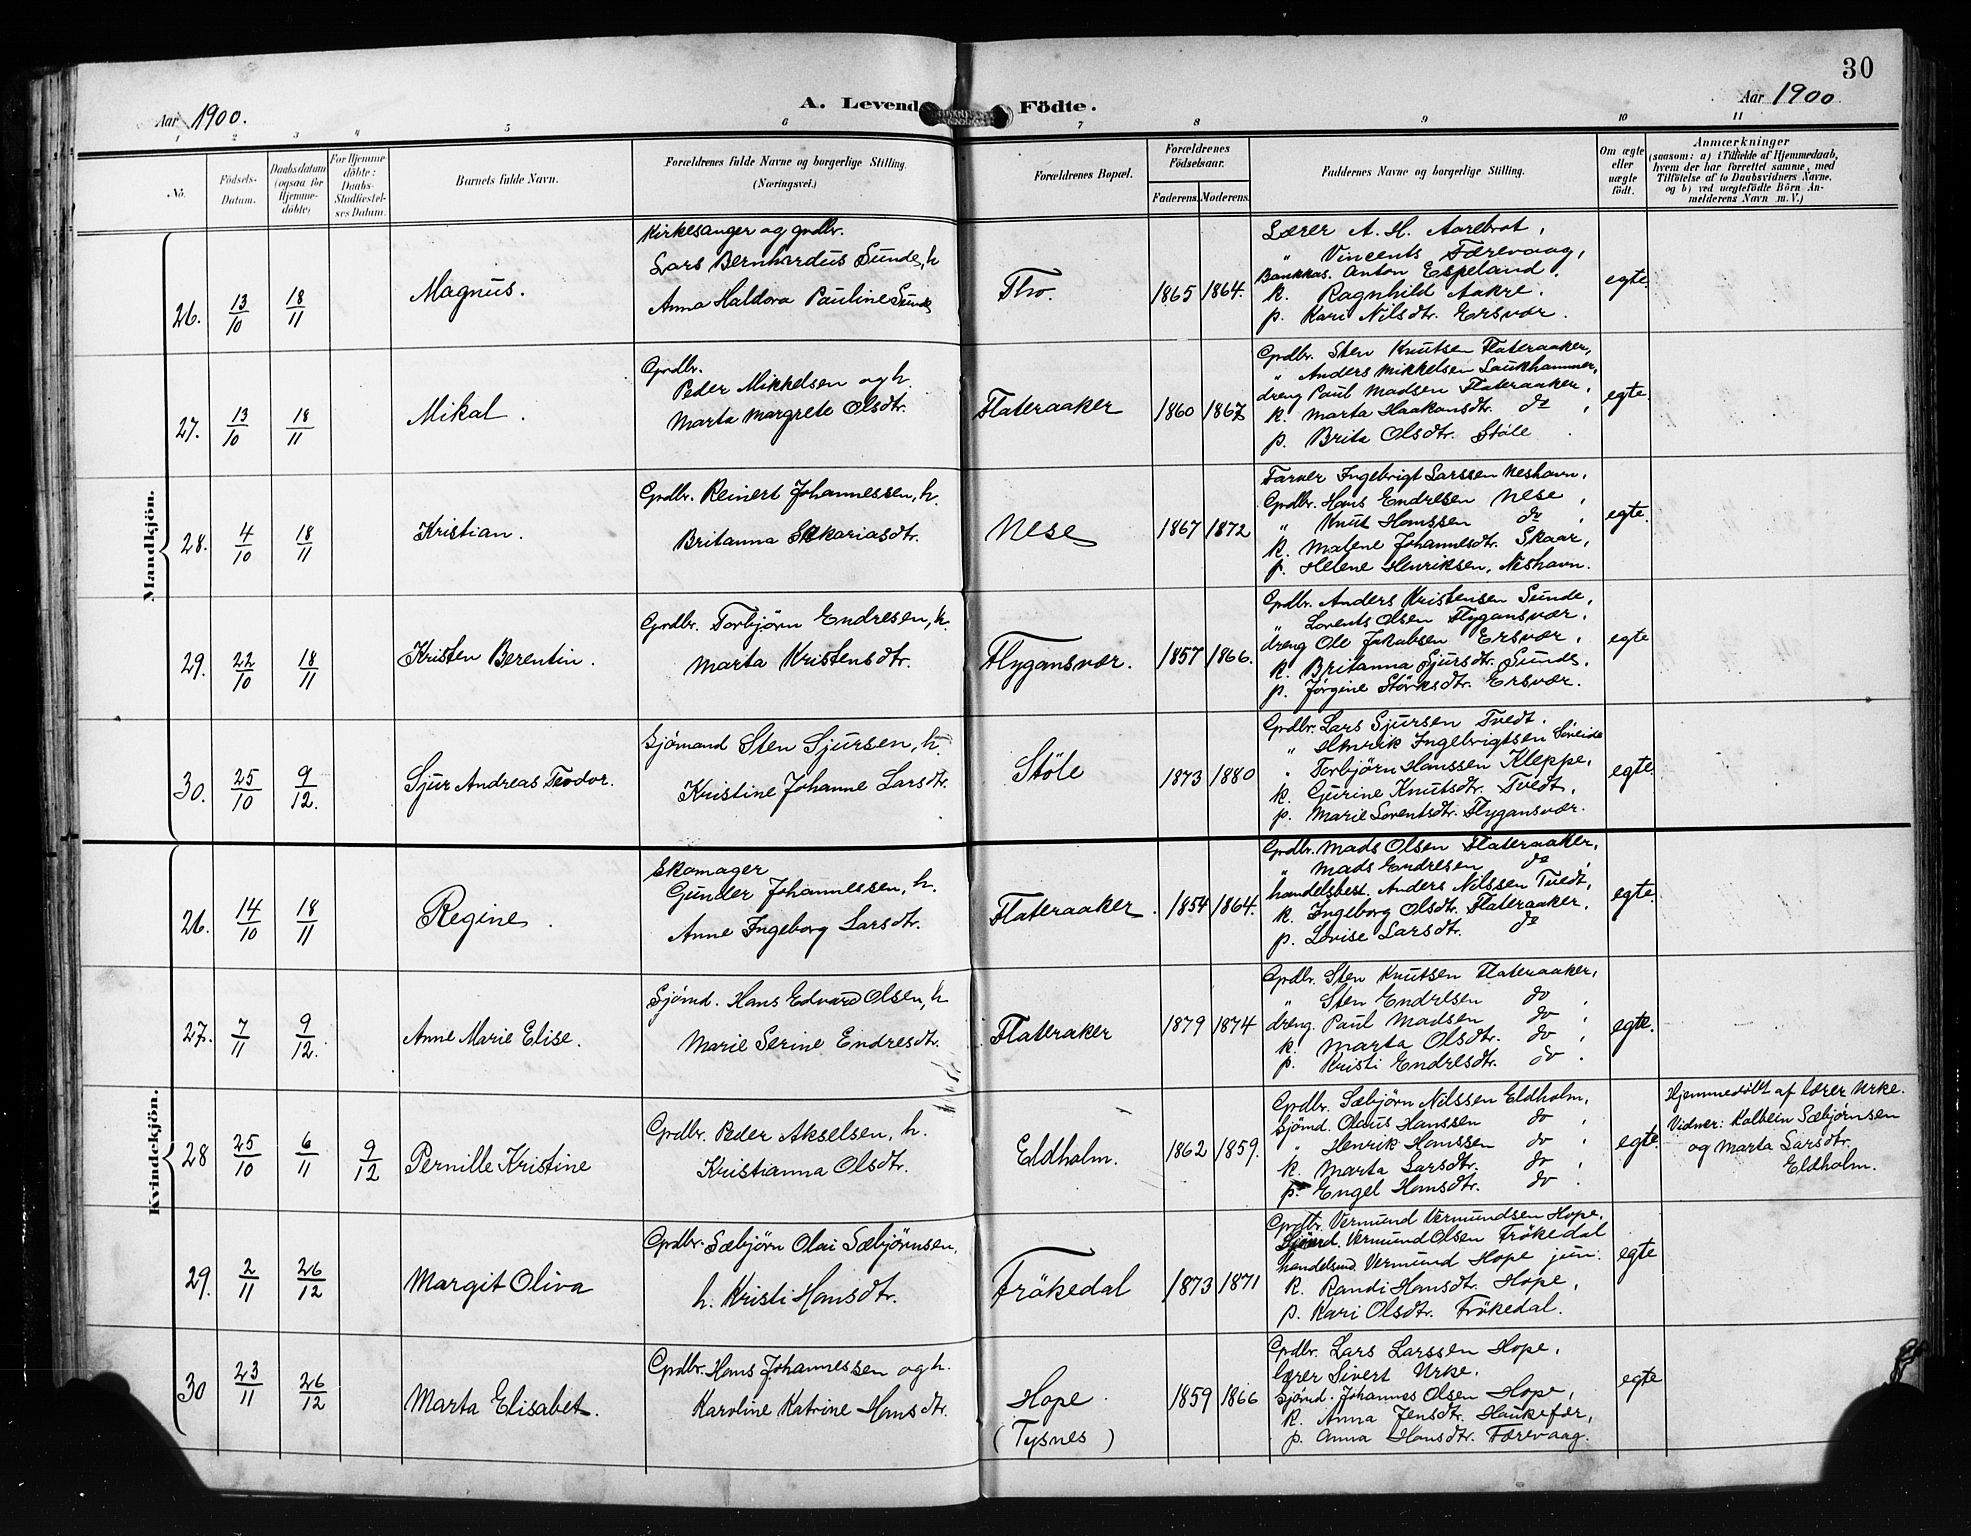 30
Aar 1900.
A. Levend Födte.
Aar 1900.
1 2 3 4 5 6 7 8 9 10 11
No.
Födsels-Datum.
Daabsdatum (ogsaa for Hjemme-döbte)
For Hjemme-döbte: Daabs-Stadfæstel-ses Datum.
Barnets fulde Navn.
Forældrenes fulde Navne og borgerlige Stilling. (Næringsvei.)
Forældrenes Bopæl.
Forældrenes Födselsaar.
Faderens. Moderens.
Faddernes Navne og borgerlige Stilling.
Om ægte eller uægte födt.
Anmærkninger
(saasom: a) i Tilfælde af Hjemmedaab, hvem der har forrettet samme, med Tilföielse af to Daabsvidners Navne, og b) ved uægtefödte Börn An-melderens Navn m. V.)
Mandkjön.
26. 13/10 18/11 Magnus.
Kirkesanger og grdbr.
Lars Bernhardus Sunde, h
Anna Haldora Pauline Sunde
Tho. 1865 1864.
Lærer A. H. Aarebrot,
" Vincents Færevaag,
Bankkas. Anton Espeland,
k. Ragnhild Aakre,
p. Kari Nilsdtr. Ersvær.
egte.
27. 13/10 18/11 Mikal.
Grdbr.
Peder Mikkelsen og h.
Marta Margrete Olsdtr.
Flateraaker 1860 1867
Grdbr. Sten Knutsen Flateraaker,
" Anders Mikkelsen Laukhammer,
dreng Paul Madsen Flateraaker,
k. Marta Haakonsdtr. do,
p. Brita Olsdtr. Støle.
egte.
28. 4/10 18/11 Kristian.
Grdbr. Reinert Johannessen, h.
Britanna Sakariasdtr.
Nese 1867 1872
Farver Ingebrigt Larssen Neshavn,
Grdbr. Hans Endresen Nese,
" Knut Hanssen do,
k. Malene Johannesdtr. Skaar,
p. Helene Henriksen, Neshavn.
egte.
29. 22/10 18/11 Kristen Berentin.
Grdbr. Torbjörn Endresen, h.
Marta Kristensdtr.
Flygansvær. 1857 1866.
Grdbr. Anders Kristensen Sunde,
" Lorents Olsen Flygansvær,
dreng Ole Jakobsen Ersvær,
k. Britanna Sjursdtr. Sunde,
p. Jørgine Störksdtr. Ersvær.
egte
30. 25/10 9/12. Sjur Andreas Teodor.
Sjömand Sten Sjursen, h.
Kristine Johanne Larsdtr.
Stöle 1873 1880
Grdbr. Lars Sjursen Tvedt.
" Henrik Ingebrigtsen
" Torbjörn Hanssen Kleppe,
k. Gurine Knutsdtr. Tvedt,
p. Marie Lorentsdtr. Flygansvær.
egte.
Kvindekjön.
26. 14/10 18/11 Regine.
Skomager
Gunder Johannessen, h.
Anne Ingeborg Larsdtr.
Flateraaker. 1854 1864.
Grdbr. Mads Olsen Flateraaker,
" Mads Endresen do,
handelsbest. Anders Nilssen Tvedt,
k. Ingeborg Olsdtr. Flateraaker,
p. Lovise Larsdtr. do
egte.
27. 7/11 9/12. Anne Marie Elise.
Sjömd. Hans Edvard Olsen, h
Marie Serine Endresdtr.
Flateraker 1879 1874
Grdbr. Sten Knutsen Flateraaker,
" Sten Endresen do,
dreng. Paul Madsen do,
k. Marta Olsdtr. do,
p. Kristi Endresdtr. do.
egte.
28 25/10 6/11 9/12 Pernille Kristine
Grdbr. Peder Akselsen, h.
Kristianna Olsdtr.
Eldholm. 1862 1859.
Grdbr. Sæbjørn Nilssen Eldholm,
Sjömd. Olaus Hanssen do,
" Henrik Hanssen do,
k. Marta Larsdtr. do,
p. Engel Hansdtr. do.
egte.
Hjemmedöbt af lærer Urke.
Vidner: Kolbein Sæbjørnsen
og Marta Larsdtr.
Eldholm.
29. 2/11 26/12 Margit Oliva
Grdbr. Sæbjörn Olai Sæbjörnsen,
h. Kristi Hansdtr.
Frökedal 1873 1871
Grdbr. Vermund Vermundsen Hope,
Sjömd. Vermund Olsen Frökedal
handelsmd. Vermund Hope jun.
k. Randi Hansdtr. Hope,
p. Kari Olsdtr. Frökedal.
egte
30 23/11 26/12 Marta Elisabet.
Grdbr. Hans Johannessen og h.
Karoline Katrine Hansdtr.
Hope
(Tysnes) 1859 1866
Grdbr. Lars Larssen Hope,
Lærer Sivert Urke.
Sjömd. Johannes Olsen Hope,
k. Anna Jensdtr. Haukefær,
p. Anna Hansdtr. Færevaag.
egte